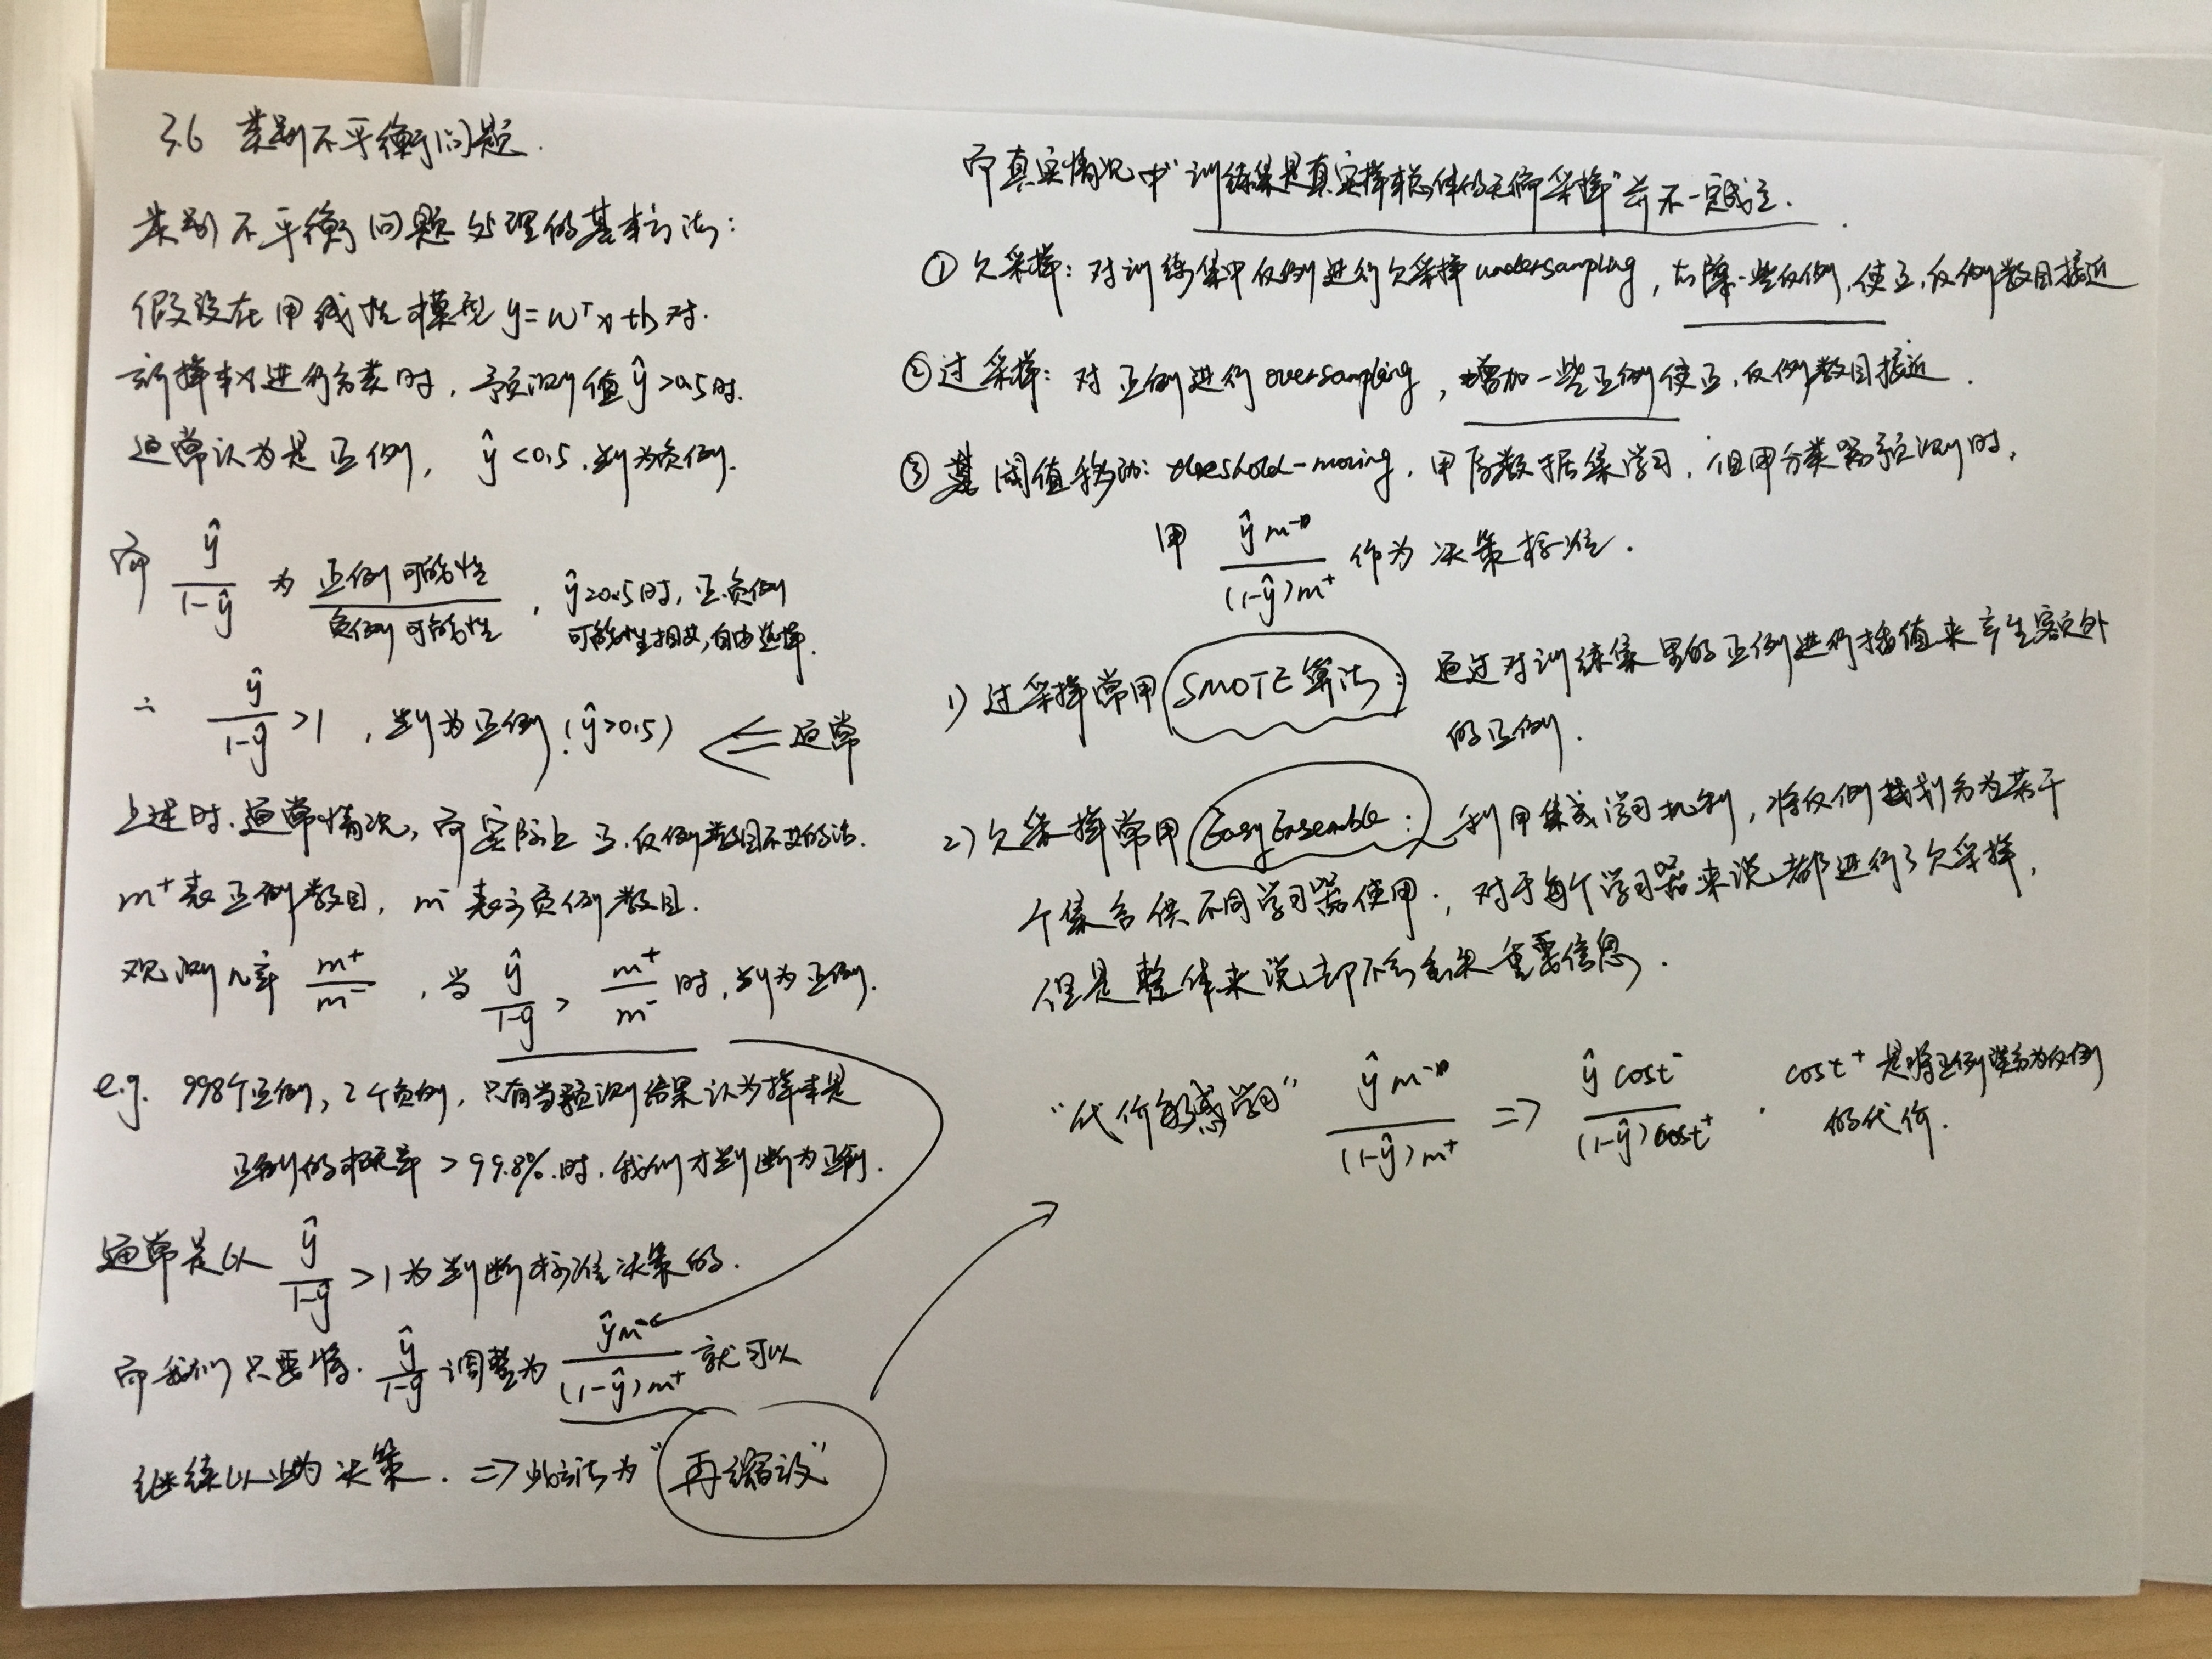 3.6 类别不平衡问题.
类别不平衡问题处理的基本方法:
假设在用线性模型 y=wᵀx+b 对
新样本x进行分类时, 预测值ŷ>0.5时.
通常认为是正例, ŷ<0.5. 判为负例.
而 ŷ/(1-ŷ) 为 正例可能性/负例可能性, ŷ=0.5时, 正负例
可能性相同, 自由选择.
∴ ŷ/(1-ŷ) >1, 判为正例 (ŷ>0.5) <= 通常
上述时. 通常情况, 而实际上 正.反例数目不同的话.
m⁺表正例数目, m⁻表示负例数目.
观测几率 m⁺/m⁻, 当 ŷ/(1-ŷ) > m⁺/m⁻ 时, 判为正例.
e.g. 998个正例, 2个负例, 只有当预测结果认为样本是
正例的概率 > 99.8% 时, 我们才判断为正例.
通常是以 ŷ/(1-ŷ) >1 为判断标准决策的.
而我们只要将 ŷ/(1-ŷ) 调整为 ŷm⁻/(1-ŷ)m⁺ 就可以
继续以1为决策. => 该方法为 "再缩放"
而真实情况中 "训练集是真实样本总体的无偏采样" 并不一定成立.
① 欠采样: 对训练集中反例进行欠采样 undersampling, 去除一些反例, 使正.反例数目接近
② 过采样: 对正例进行 oversampling, 增加一些正例使正.反例数目接近.
③ 阈值移动: threshold-moving, 用原数据集学习, 但用分类器预测时,
用 ŷm⁻/(1-ŷ)m⁺ 作为决策标准.
1) 过采样常用 SMOTE算法: 通过对训练集里的正例进行插值来产生额外
的正例.
2) 欠采样常用 EasyEnsemble: 利用集成学习机制, 将反例划分为若干
个集合供不同学习器使用, 对于每个学习器来说都进行了欠采样,
但是整体来说却不会丢失重要信息).
"代价敏感学习" ŷm⁻/(1-ŷ)m⁺ => ŷcost⁻/(1-ŷ)cost⁺. cost⁺是将正例误分为反例
的代价.